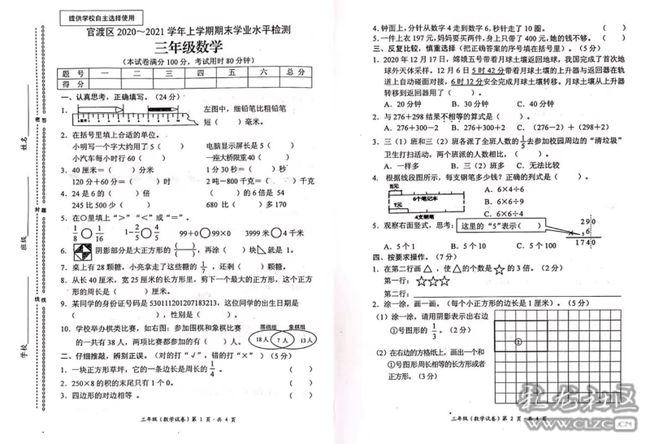 提供学校自主选择使用
官渡区 2020～2021 学年上学期期末学业水平检测
三年级数学
（本试卷满分 100 分，考试用时 80 分钟）
题 号 一 二 三 四 五 六 总 分
得 分
一、认真思考，正确填写。（24 分）
1. 左图中，细铅笔比粗铅笔
短（ ）毫米。
2. 在括号里填上合适的单位。
小明写一个字大约用了 5（ ） 电脑显示屏长是 5（ ）
小汽车每小时行 60（ ） 一座大桥限重 40（ ）
3. 40 厘米=（ ）分米 1 分 30 秒=（ ）秒
120 分+60 分=（ ）时 2 吨－800 千克=（ ）千克
4. 24 是 6 的（ ）倍 （ ）的 6 倍是 54
245 比 500 少（ ） 680 比（ ）多 170
5. 在○里填上“＞”“＜”或“＝”。
1/8 ○ 1/16 1－2/5 ○ 4/5 99＋0 ○ 99×0 3999 米 ○ 4 千米
6. 阴影部分是大正方形的（ ）/（ ），再涂（ ）块 就是 1。
7. 桌上有 28 颗糖，小亮拿走了这些糖的 1/7，还剩（ ）颗糖。
8. 从长 40 厘米，宽 25 厘米的长方形里，剪下一个最大的正方形，这个正方
形的周长是（ ）厘米。
9. 某同学的身份证号码是 530111201207183213，这位同学的出生日期是
（ ），性别是（ ）。
10. 学校举办棋类比赛，如右图：参加围棋和象棋比赛
的一共有 38 人，两项比赛都参加的有（ ）人。
围棋组 象棋组
18人 7人 13人
二、仔细推敲，辨别正误。（对的打“√”，错的打“×”）（5 分）
1. 一块正方形草坪，它的一条边长就是它的周长。 （ ）
2. 250×8 的积的末尾只有 1 个 0。 （ ）
3. 四边形的对边相等。 （ ）
三年级（数学试卷）第 1 页·共 4 页
姓名
班级
学校
4. 钟面上，分针从数字 4 走到数字 6，秒针走了 10 圈。 （ ）
5. 一件上衣 197 元，妈妈要买两件，身上只带了 400 元，她的钱不够。 （ ）
三、反复比较，慎重选择（把正确答案的序号填在括号里）。（5 分）
1. 2020 年 12 月 17 日，嫦娥五号带着月球土壤返回地球，我国完成了首次地
球外天体采样。12 月 6 日 5 时 42 分带着月球土壤的上升器与返回器在轨
道上自动碰面对接，6 时 12 分安全完成月球土壤转移。月球土壤从上升器
转移到返回器用了（ ）。
A. 20 分钟 B. 30 分钟 C. 40 分钟
2. 与 276＋298 结果不相等的算式是（ ）。
A. 276＋300－2 B. 276＋300＋2 C. （276－2）＋（298＋2）
3. 三（1）班和三（2）班各派了全班人数的 1/5 去参加校园周边的“清垃圾”
卫生打扫活动，两个班派的人数相比，（ ）。
A. 一样多 B. 三（2）班多 C. 无法比较
4. 根据线段图所示，每支钢笔多少钱？正确的列式是（ ）。
8元
6个笔记本
4支钢笔
A. 6×4÷6
B. 6×8÷4
C. 6×4÷8
5. 观察右面竖式，思考： 这里的“5”表示（ ）
2 9 0
× 6
1 7 4 0
A. 5 个 1 B. 5 个 10 C. 5 个 100
四、按要求操作。（7 分）
1. 在第二行画△，使△的个数是☆的 3 倍。（2 分）
第一行：☆☆☆
第二行：
2. 涂一涂，画一画。（每个小正方形的边长是 1 厘米）。（5 分）
（1）涂一涂，请用阴影表示出右边
①号图形的 1/3。（2 分）
（2）在右边的方格纸上，画出一个和
①号图形周长相等的长方形或者
正方形。（3 分）
①
三年级（数学试卷）第 2 页·共 4 页
www.CLZC.CN